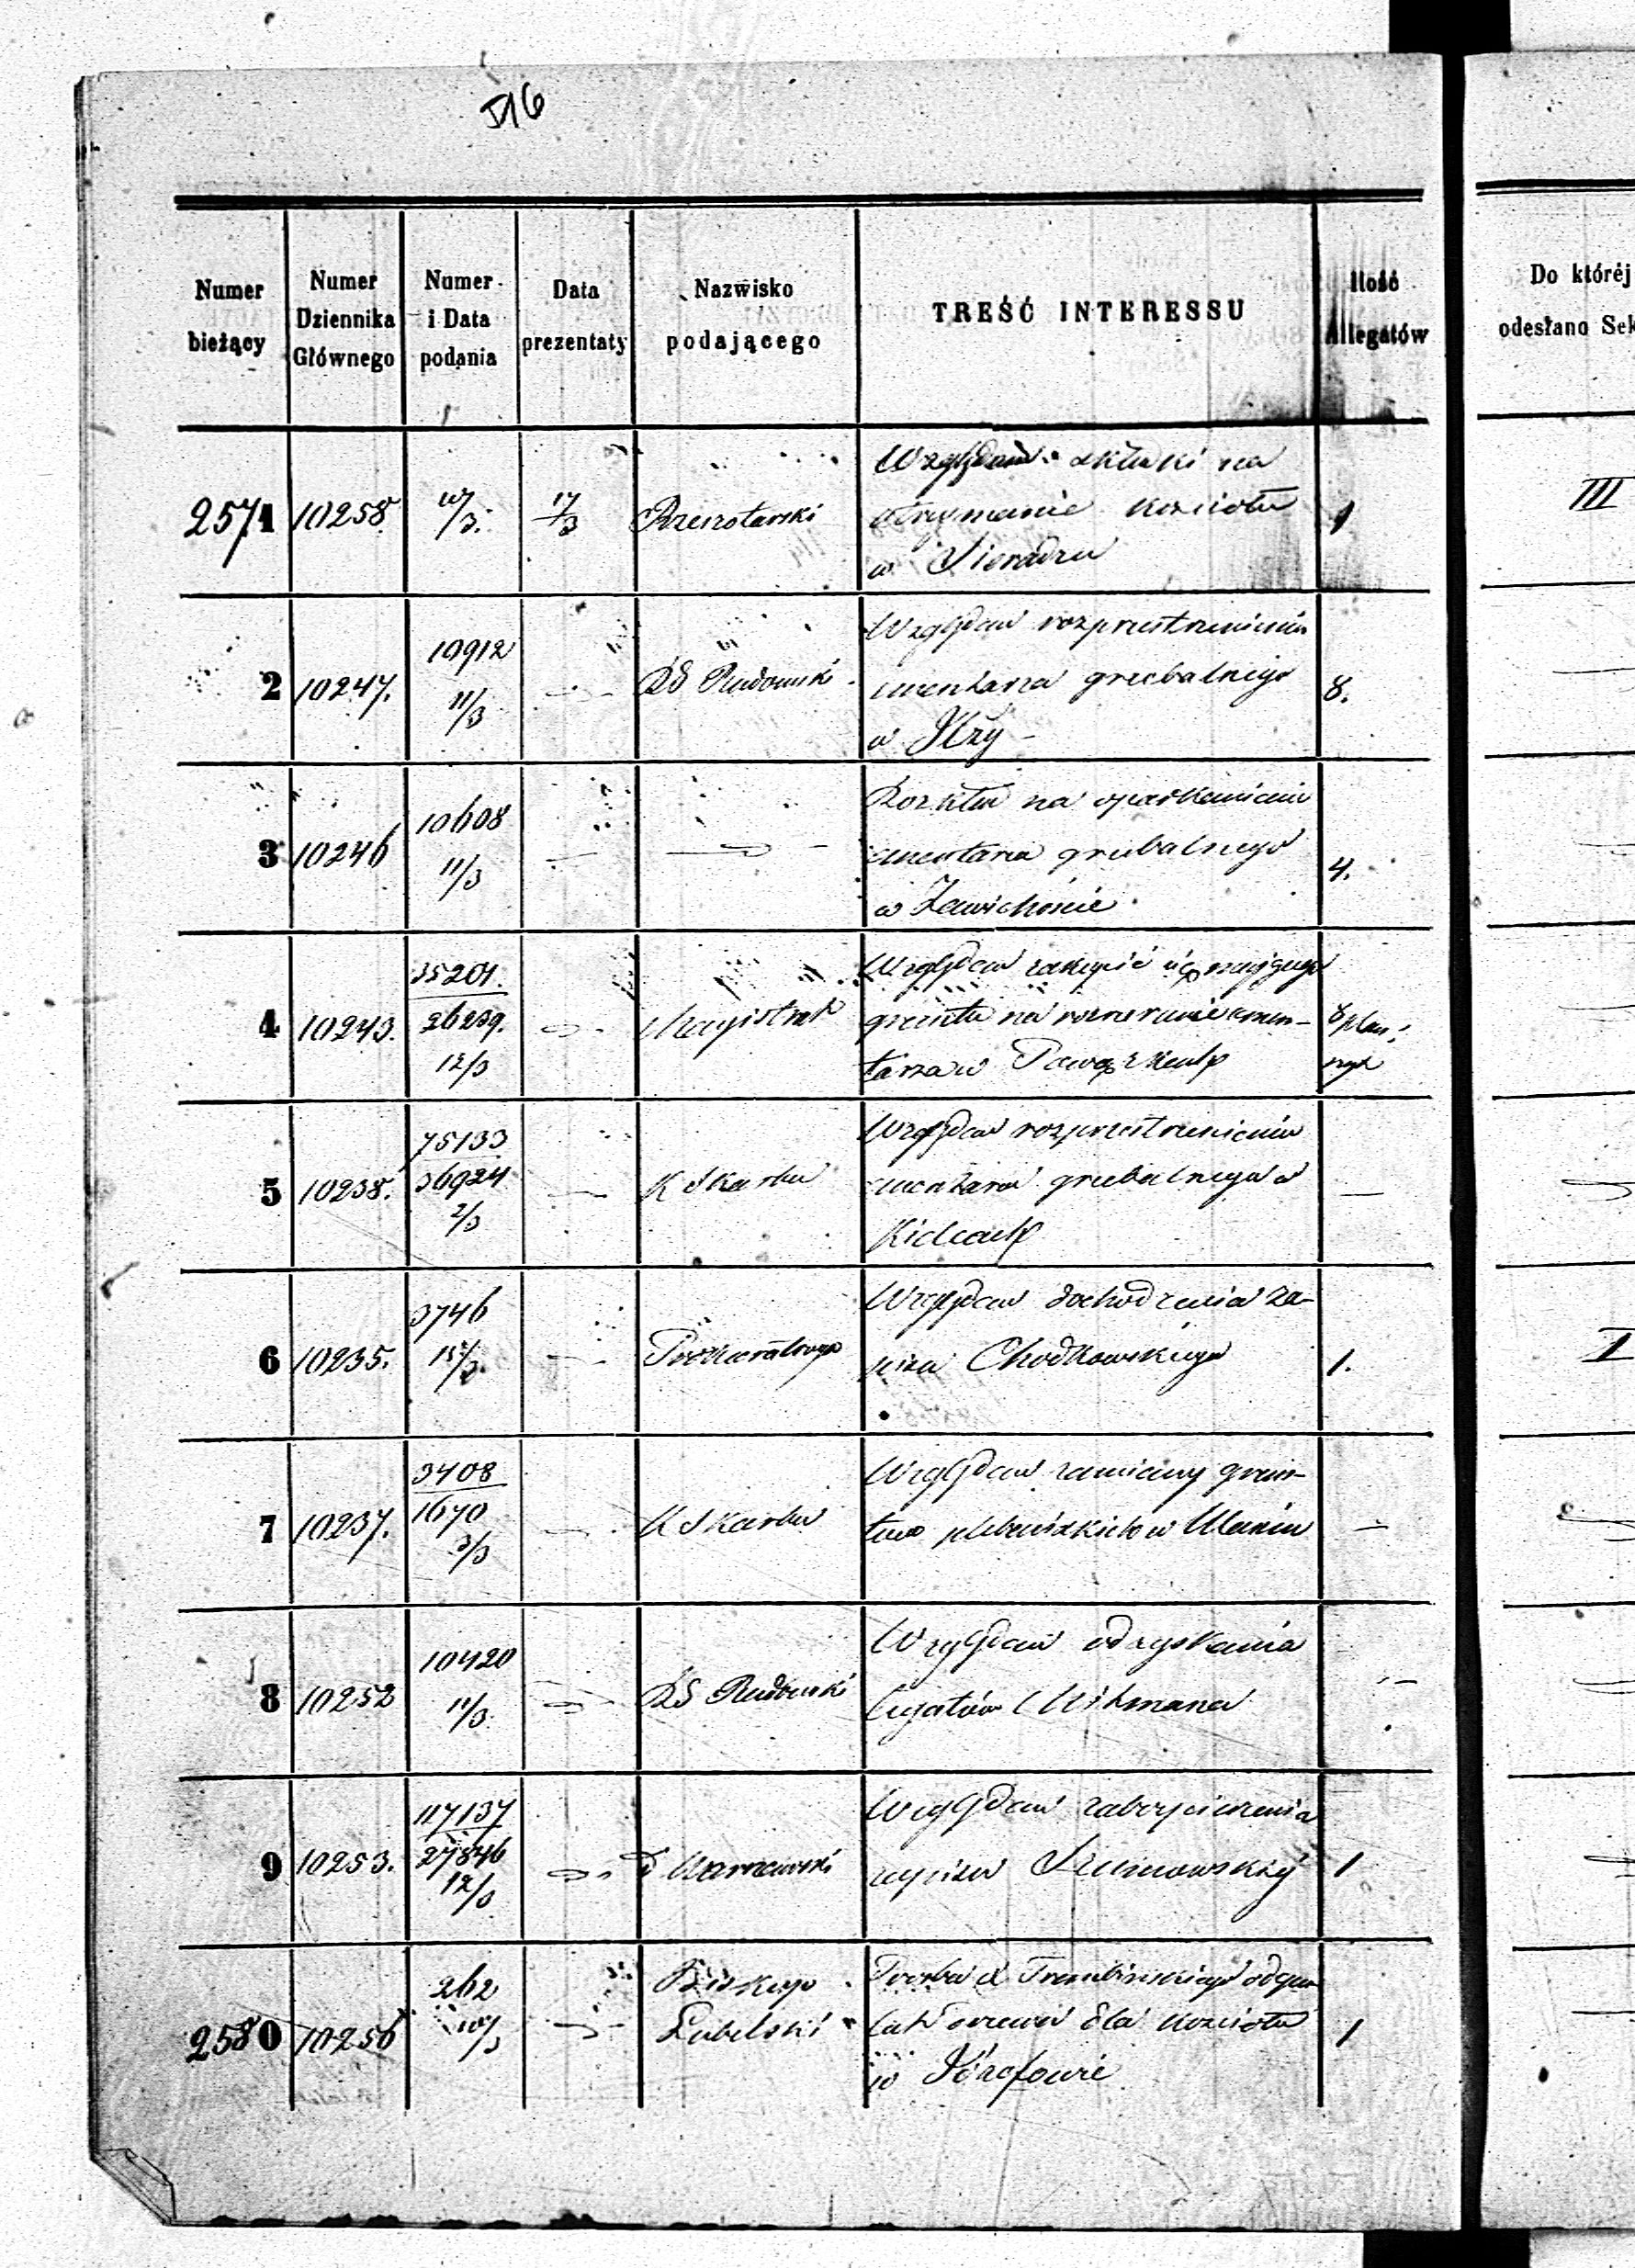 516
Numer bieżący
Numer Dziennika Głównego
Numer i Data podania
Data prezentaty
Nazwisko podającego
TREŚĆ INTERESSU
Ilość Allegatów
Do któréj
odesłano Sek
2571 10258 10/3. 17/3
Względem składki na
utrzymanie kościoła
w Sieradzu
1
III
2 10247. 10912 11/3 RG Radomski
Względem rozprzestrzenienia
cmentarza grzebalnego
w Iłży
8.
3 10246 10608 11/3
Rozkład na oparkanienie
cmentarza grzebalnego
w Zawichoście
4.
4 10243. 35201. 26239. 12/3 Magistrat
Względem
gruntu na cmen-
tarza w Powązkach
8
5 10238. 75133 36924 2/3 K Skarbu
Względem rozprzestrzenienia
cmentarza grzebalnego w
Kielcach
6 10235. 3746 15/3. Prokuratorya
Względem dochodzenia za-
pisu Chodkowskiego
1.
I
7 10237. 3408 1670 3/3 K Skarbu
Względem zamiany grun-
tów plebańskich w
8 10252 10420 11/3 RG Radomski
Względem odzyskania
legatów
9 10253. 117137 27846 12/3 Warszawski
Względem zabezpieczenia
zapisu
1
2580 10256 262 10/3 Biskup
Lubelski
Prośba
drzewa dla kościoła
w Józefowie
1